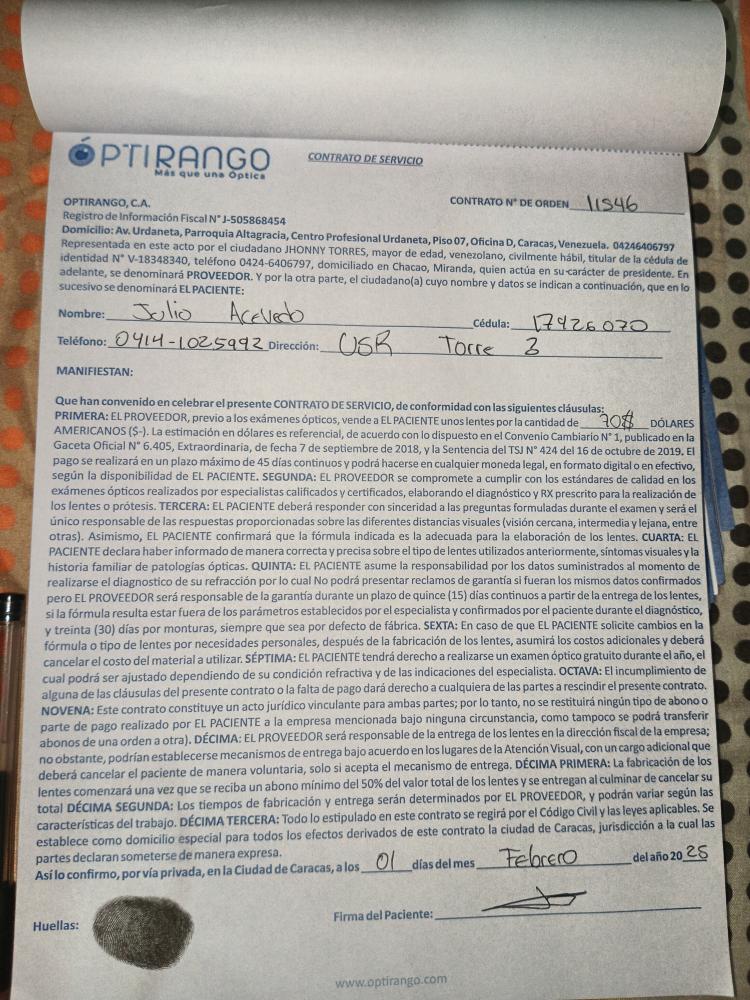 ÓPTIRANGO
Más que una Óptica
CONTRATO DE SERVICIO
OPTIRANGO, C.A.
CONTRATO N° DE ORDEN 11546
Registro de Información Fiscal N° J-505868454
Domicilio: Av. Urdaneta, Parroquia Altagracia, Centro Profesional Urdaneta, Piso 07, Oficina D, Caracas, Venezuela. 04246406797
Representada en este acto por el ciudadano JHONNY TORRES, mayor de edad, venezolano, civilmente hábil, titular de la cédula de
identidad N° V-18348340, teléfono 0424-6406797, domiciliado en Chacao, Miranda, quien actúa en su carácter de presidente. En
adelante, se denominará PROVEEDOR. Y por la otra parte, el ciudadano(a) cuyo nombre y datos se indican a continuación, que en lo
sucesivo se denominará EL PACIENTE:
Nombre: Julio Acevedo Cédula: 17426070
Teléfono: 0414-1025992 Dirección: Torre 3
MANIFIESTAN:
Que han convenido en celebrar el presente CONTRATO DE SERVICIO, de conformidad con las siguientes cláusulas:
PRIMERA: EL PROVEEDOR, previo a los exámenes ópticos, vende a EL PACIENTE unos lentes por la cantidad de 70$ DÓLARES
AMERICANOS ($-). La estimación en dólares es referencial, de acuerdo con lo dispuesto en el Convenio Cambiario N° 1, publicado en la
Gaceta Oficial N° 6.405, Extraordinaria, de fecha 7 de septiembre de 2018, y la Sentencia del TSJ N° 424 del 16 de octubre de 2019. El
pago se realizará en un plazo máximo de 45 días continuos y podrá hacerse en cualquier moneda legal, en formato digital o en efectivo,
según la disponibilidad de EL PACIENTE. SEGUNDA: EL PROVEEDOR se compromete a cumplir con los estándares de calidad en los
exámenes ópticos realizados por especialistas calificados y certificados, elaborando el diagnóstico y RX prescrito para la realización de
los lentes o prótesis. TERCERA: EL PACIENTE deberá responder con sinceridad a las preguntas formuladas durante el examen y será el
único responsable de las respuestas proporcionadas sobre las diferentes distancias visuales (visión cercana, intermedia y lejana, entre
otras). Asimismo, EL PACIENTE confirmará que la fórmula indicada es la adecuada para la elaboración de los lentes. CUARTA: EL
PACIENTE declara haber informado de manera correcta y precisa sobre el tipo de lentes utilizados anteriormente, síntomas visuales y la
historia familiar de patologías ópticas. QUINTA: EL PACIENTE asume la responsabilidad por los datos suministrados al momento de
realizarse el diagnostico de su refracción por lo cual No podrá presentar reclamos de garantía si fueran los mismos datos confirmados
pero EL PROVEEDOR será responsable de la garantía durante un plazo de quince (15) días continuos a partir de la entrega de los lentes,
si la fórmula resulta estar fuera de los parámetros establecidos por el especialista y confirmados por el paciente durante el diagnóstico,
y treinta (30) días por monturas, siempre que sea por defecto de fábrica. SEXTA: En caso de que EL PACIENTE solicite cambios en la
fórmula o tipo de lentes por necesidades personales, después de la fabricación de los lentes, asumirá los costos adicionales y deberá
cancelar el costo del material a utilizar. SÉPTIMA: EL PACIENTE tendrá derecho a realizarse un examen óptico gratuito durante el año, el
cual podrá ser ajustado dependiendo de su condición refractiva y de las indicaciones del especialista. OCTAVA: El incumplimiento de
alguna de las cláusulas del presente contrato o la falta de pago dará derecho a cualquiera de las partes a rescindir el presente contrato.
NOVENA: Este contrato constituye un acto jurídico vinculante para ambas partes; por lo tanto, no se restituirá ningún tipo de abono o
parte de pago realizado por EL PACIENTE a la empresa mencionada bajo ninguna circunstancia, como tampoco se podrá transferir
abonos de una orden a otra). DÉCIMA: EL PROVEEDOR será responsable de la entrega de los lentes en la dirección fiscal de la empresa;
no obstante, podrían establecerse mecanismos de entrega bajo acuerdo en los lugares de la Atención Visual, con un cargo adicional que
deberá cancelar el paciente de manera voluntaria, solo si acepta el mecanismo de entrega. DÉCIMA PRIMERA: La fabricación de los
lentes comenzará una vez que se reciba un abono mínimo del 50% del valor total de los lentes y se entregan al culminar de cancelar su
total DÉCIMA SEGUNDA: Los tiempos de fabricación y entrega serán determinados por EL PROVEEDOR, y podrán variar según las
características del trabajo. DÉCIMA TERCERA: Todo lo estipulado en este contrato se regirá por el Código Civil y las leyes aplicables. Se
establece como domicilio especial para todos los efectos derivados de este contrato la ciudad de Caracas, jurisdicción a la cual las
partes declaran someterse de manera expresa.
Así lo confirmo, por vía privada, en la Ciudad de Caracas, a los 01 días del mes Febrero del año 2025
Huellas:
Firma del Paciente:
www.optirango.com